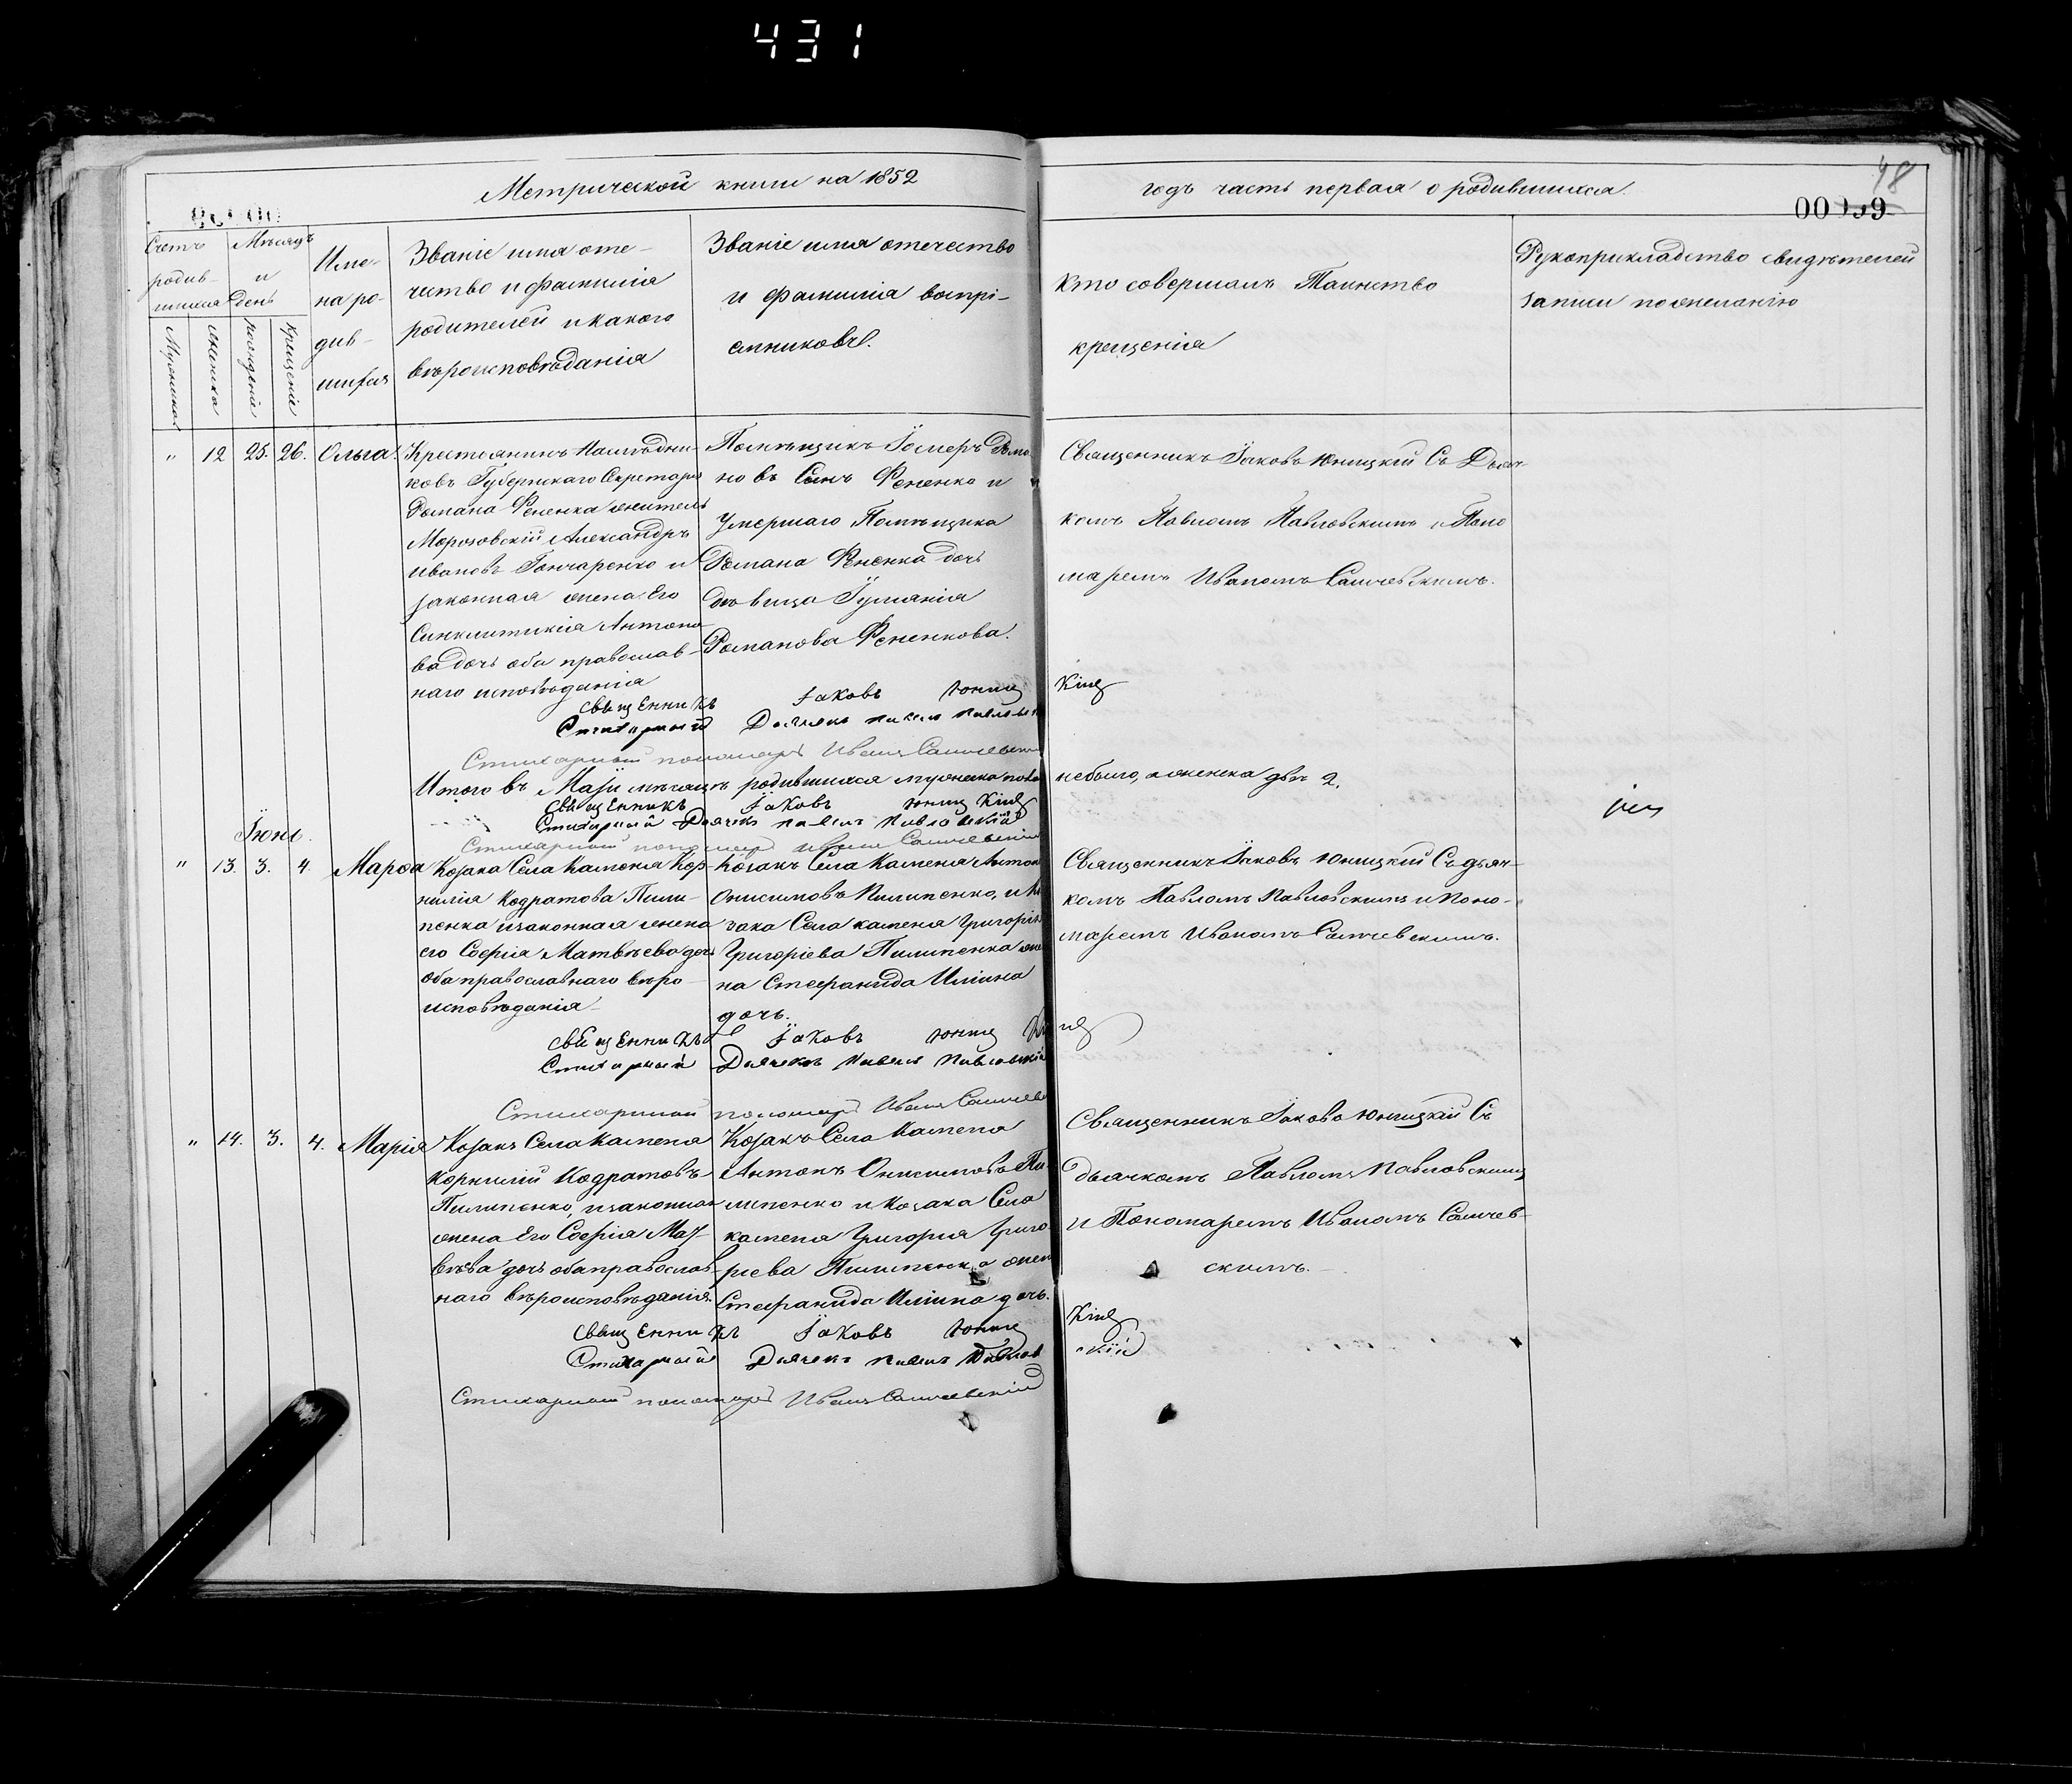 431
48
00059
Метрической книги на 1852
годъ часть первая о родившихся.
Счетъ родив-шихся
Мѣсяцъ и день
Мужеска
Женска
Рожденіе
Крещеніе
Име-
на ро-
див-
шихся
Званіе имя оте-
чество и фамилія
родителей и какого
вѣроисповѣданія
Званіе имя отечество
и фамилія воспрі-
емниковъ.
Кто совершалъ Таинство
крещенія
Рукоприкладство свидѣтелей
записи по желанію
" 12 25. 26. Ольга.
Крестьянинъ Наслѣдни-
ковъ Губернскаго Секретаря
Романа Фененка житель
Морозовскій Александръ
Ивановъ Гончаренко и
законная жена Его
Синклитикія Антоно
ва дочь оба православ-
наго исповѣданія
Помѣщикъ
новъ Сынъ Фененко и
Умершаго Помѣщика
Романа Фененка дочь
дѣвица
Романова Фененкова.
Священникъ Іаковъ Юницкій Съ Дьяч
комъ Павломъ Павловскимъ и Поно
маремъ Иваномъ Самчевскимъ.
Священникъ Іаковъ Юницкій
Стихарный Дьячекъ Павелъ Павловскій
Стихарный пономарь Иванъ Самчевскій
Итого въ Маіи мѣсяцѣ родившихся мужеска пола небыло, а женска двѣ 2.
Священникъ Іаковъ Юницкій
Стихарный Дьячекъ Павелъ Павловскій
Стихарный пономарь Иванъ Самчевскій
Іюнь.
" 13. 3. 4. Марѳа
Козака Села Каменя Кор-
нилія Кодратова Пили-
пенка изаконная жена
его Софія Матвѣева дочь
оба православнаго вѣро
исповѣданія
Козакъ Села Каменя Антонъ
Онисимовъ Пилипенко, и Ко
зака Села каменя Григорія
Григоріева Пилипенка же
на Стефанида Иліина
дочь.
Священникъ Іаковъ Юницкій Съ дьяч-
комъ Павломъ Павловскимъ и Поно-
маремъ Иваномъ Самчевскимъ.
Священникъ Іаковъ Юницкій
Стихарный Дьячекъ Павелъ Павловскій
Стихарный пономарь Иванъ Самчевс
" 14. 3. 4. Марія
Козакъ Села Каменя
Корнилій Кодратовъ
Пилипенко, изаконная
жена Его Софія Мат-
вѣева дочь оба православ-
наго вѣроисповѣданія.
Козакъ Села Каменя
Антонъ Онисимовъ Пи
липенко и Козака Села
каменя Григорія Григо
ріева Пилипенка жена
Стефанида Иліина дочь.
Священникъ Іаковъ Юницкій Съ
дьячкомъ Павломъ Павловскимъ
и Пономаремъ Иваномъ Самчев-
скимъ.
Священникъ Іаковъ Юницкій
Стихарный Дьячекъ Павелъ Павловскій
Стихарный пономарь Иванъ Самчевскій